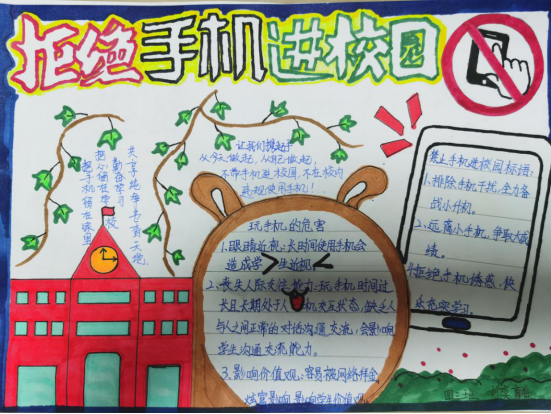 拒绝手机进校园
让我们携起手
从今天做起,从我做起,
不带手机进校园,不在校内
违规使用手机!
共享
勤奋学习
把心留在学校
把手机留在家里
玩手机的危害
1、眼睛近视:长时间使用手机会
造成学生近视
2、丧失人际交流能力:玩手机时间过
长且长期处于人机交互状态,缺乏人
与人之间正常的对话沟通交流,会影响
学生沟通交流能力。
3、影响价值观:容易被网络拜金
炫富影响 影响学生价值观
禁止手机进校园标语:
1、排除手机干扰,全力备
战小升初。
2、远离小手机,争取大成
绩。
拒绝手机诱惑,快
学习。